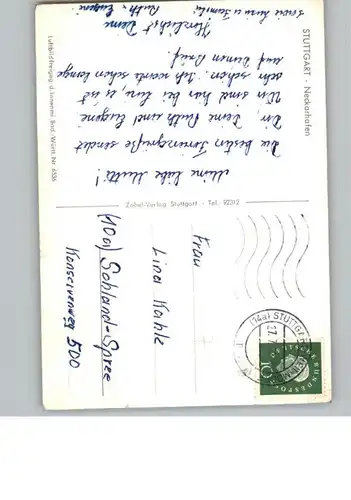 STUTTGART - Neckarhafen
Meine liebe Mutti!
Die besten Feriengrüße sendet
Dir Deine Ruth und Eugene
Wir sind hier bei Lure, es ist
sehr schön. Ich warte schon lange
auf Deinen Brief.
Herzlichst Deine
Ruth - Eugen
sowie Lure u. Familie
Luftbildfreigeg. d. Innenmi. Bad.-Württ. Nr. 6336
Zobel-Verlag Stuttgart - Tel. 92312
Frau
Lina Kahle
(10a) Sohland-Spree
Konservenweg 500
(14a) STUTTGART
27.7
DEUTSCHE BUNDESPOST
10